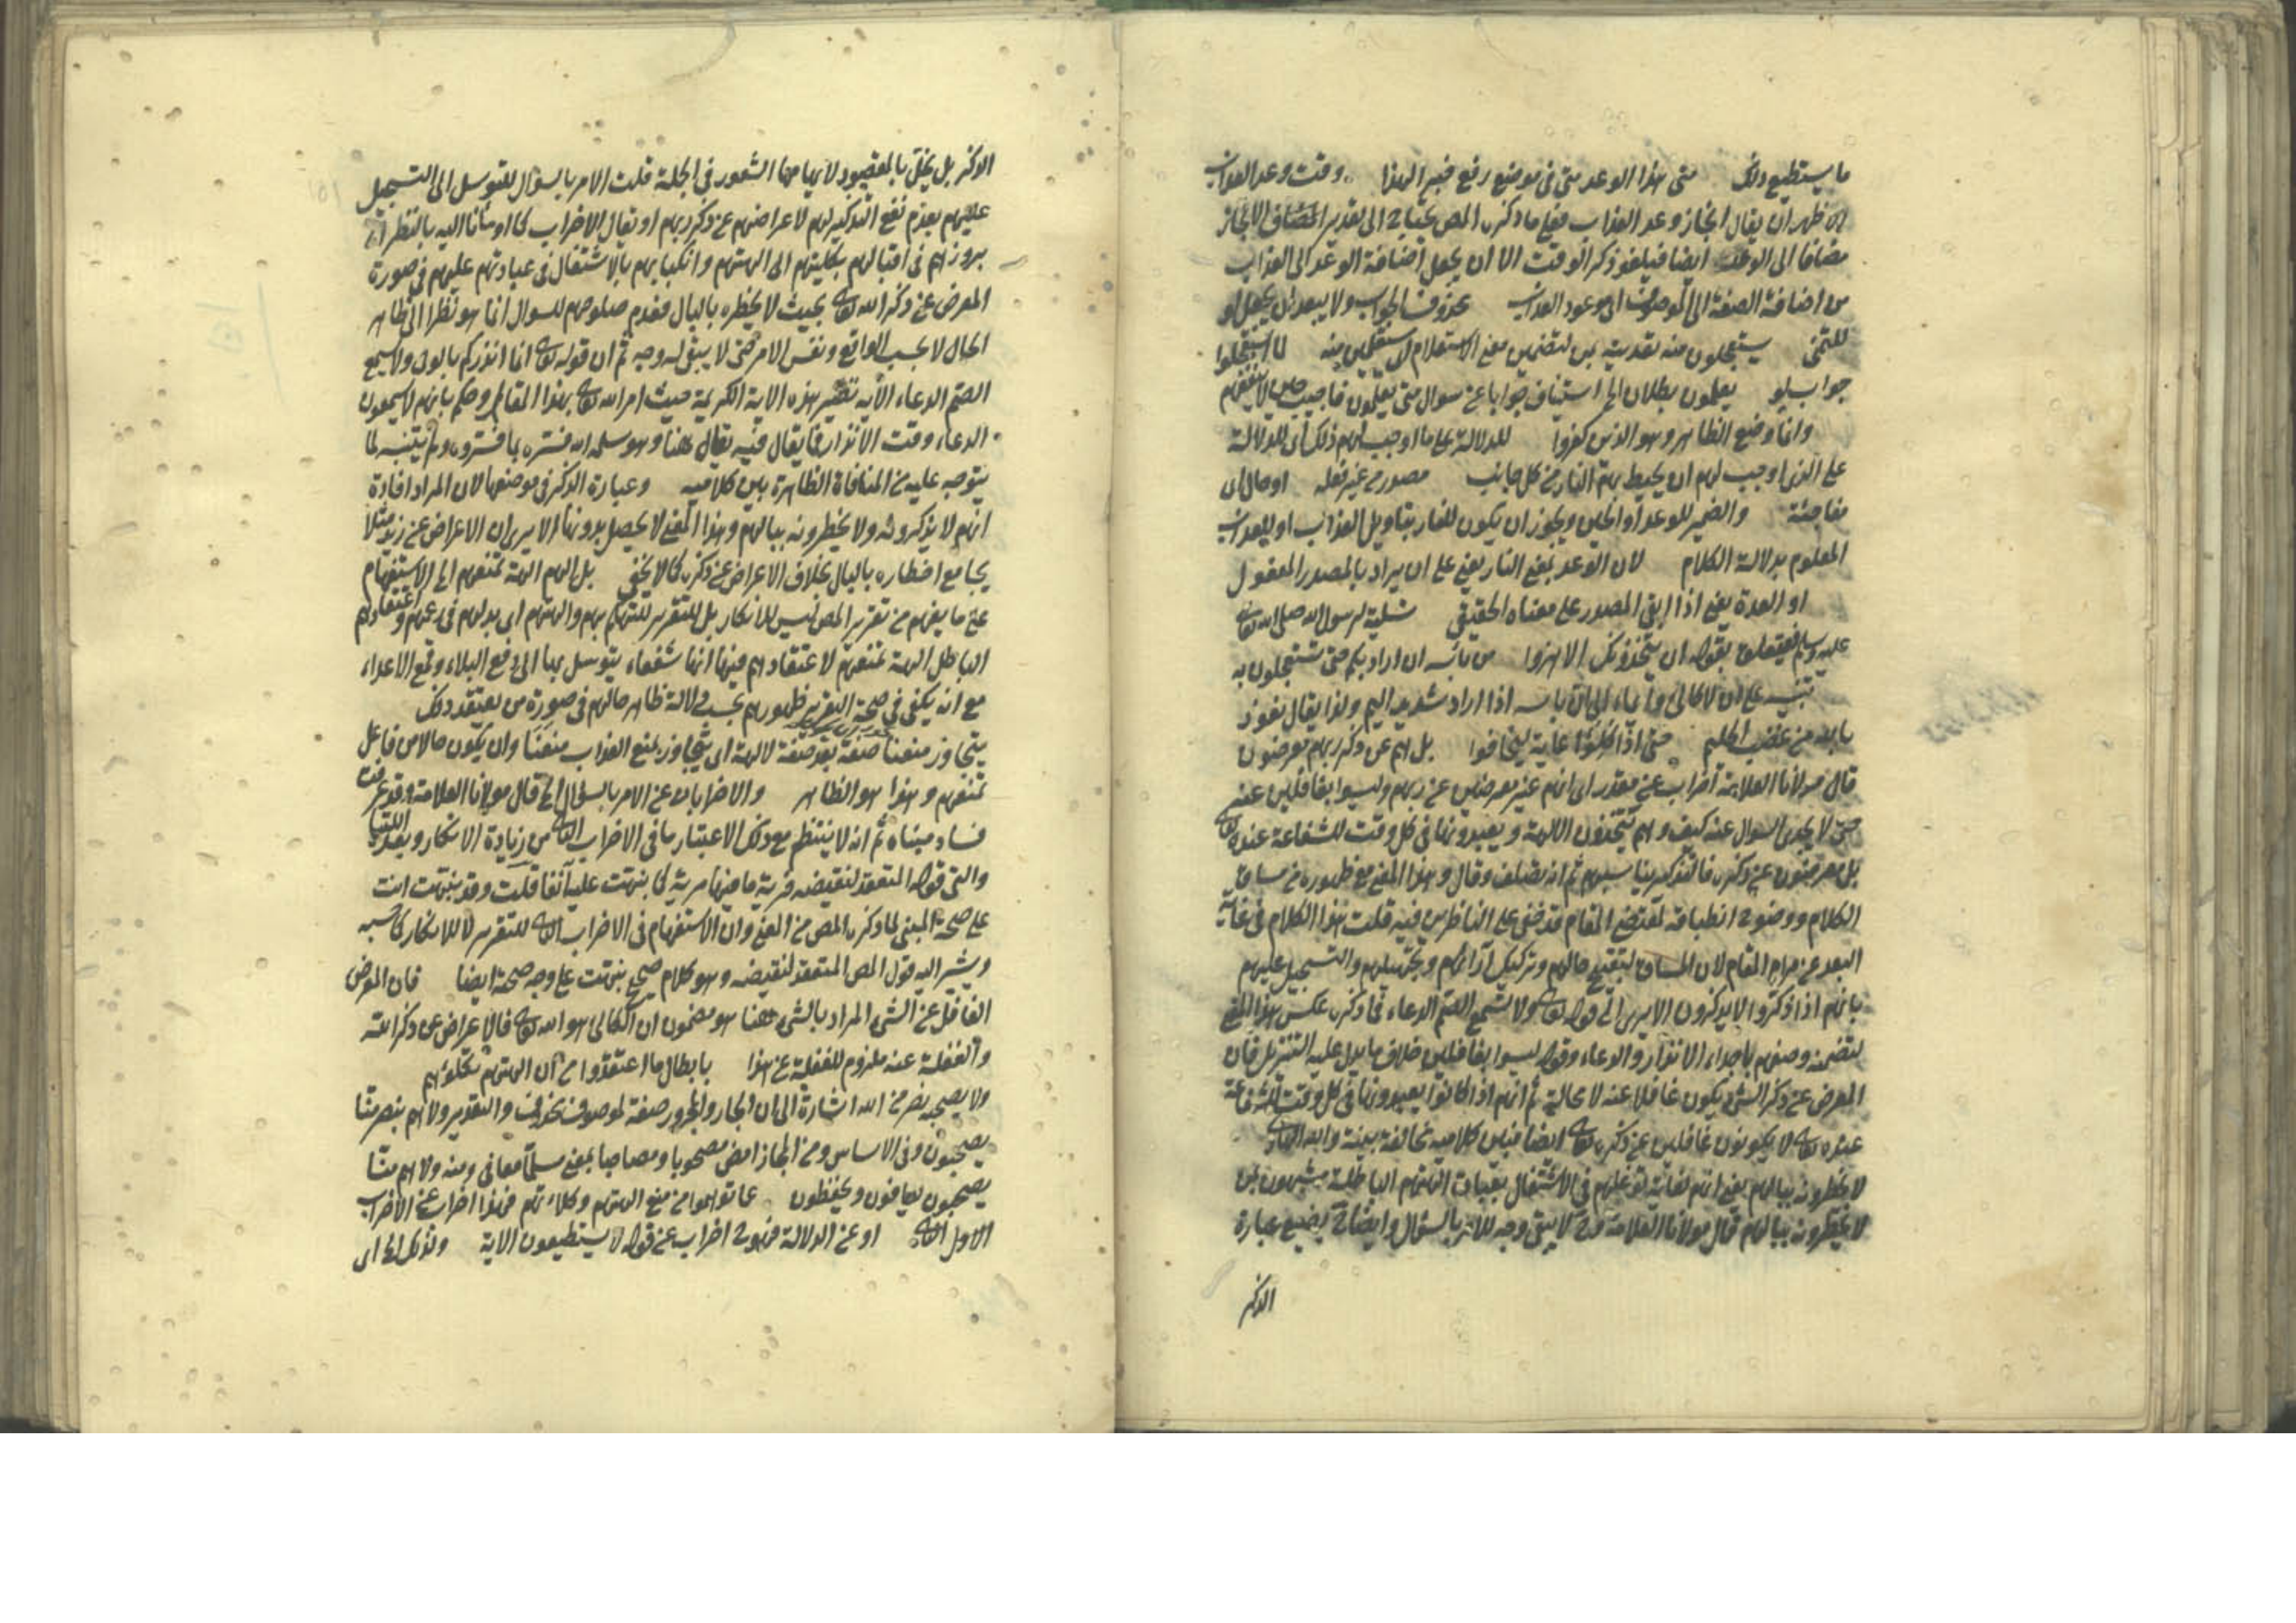 ما يستطيع ذلك متى هذا الوعد متى فى موضع رفع خبر لهذا وقت وعد العذاب
الاظهر ان يقال انجاز وعد العذاب فعلى ما ذكره المص يحتاج الى تقدير المضاف الانجاز
مضافا الى الوعد ايضا فيلغو ذكر الوقت الا ان يجعل اضافة الوعد الى العذاب
من اضافة الصفة الى الموصوف اى موعود العذاب محذوف الجواب ولا يبعد ان يجعل لو
للتمنى يستعجلون منه تعديته بمن لتضمين معنى الاستعلام اى مستعلمين منه لما استعجلوا
جواب لو يعلمون بطلان الخ استيناف جوابا عن سوال متى يعلمون فاجيب حين لا ينفعهم
وانما وضع الظاهر وهو الذين كفروا للدلالة على ما اوجب لهم ذلك اى للدلالة
على الذى اوجب لهم ان يحيط بهم النار من كل جانب مصدر من غير فعله او حال اى
مفاجئة والضمير للوعد او الحين ويجوز ان يكون للنار بتاويل العذاب او للعذاب
المعلوم بدلالة الكلام لان الوعد بمعنى النار يعنى على ان يراد بالمصدر المفعول
او العدة يعنى اذا ابقى المصدر على معناه الحقيقى تسلية لرسول الله صلى الله تعالى
عليه وسلم فيتعلق بقوله ان يتخذونك الا هزوا من بأسه ان اراد بكم حتى تستعجلون به
تنبيه على ان لا كالئ وايماء الى ان باسه اذا اراد شديد اليم ولذا يقال نعوذ
بالله من غضب الحليم حتى اذا كلئوا غاية ليخافوا بل هم عن ذكر ربهم معرضون
قال مولانا العلامة اضراب عن مقدر اى انهم غير معرضين عن ربهم وليسوا بغافلين عنه
حتى لا يجدى السوال عنه كيف وهم يتخذون الالهة ويعبدونها فى كل وقت للشفاعة عنده تعالى
بل معرضون عن ذكره فالتذكير يناسبهم ثم انه تصلف وقال وهذا المعنى مع ظهوره من مساق
الكلام ووضوح انطباقه لمقتضى المقام قد خفى على الناظرين فيه قلت هذا الكلام فى غاية
البعد عن مرام المقام لان المساق لتقبيح حالهم وتركيك آرائهم وتجهيلهم والتسجيل عليهم
بانهم اذا ذكروا لا يذكرون الا يرى الى قوله تعالى ولا تسمع الصم الدعاء فما ذكره عكس هذا المعنى
لتضمنه وصفهم باجداء الانذار والدعاء وقوله ليسوا بغافلين خلاف ما يدل عليه التنزيل فان
المعرض عن ذكر الشئ يكون غافلا عنه لا محالة ثم انهم اذا كانوا يعبدونها فى كل وقت للشفاعة
عنده تعالى لا يكونون غافلين عن ذكره تعالى ايضا فبين كلاميه مخالفة بينة والله الهادى
لا يخطرونه ببالهم يعنى انهم لغاية توغلهم فى الاشتغال بعبادة الهتهم الباطلة مشبهون بمن
لا يخطرونه ببالهم قال مولانا العلامة فح لا يبقى وجه للامر بالسؤال وايضا ح يضيع عبارة
الذكر
الذكر بل يخل بالمقصود لايهامها الشعور فى الجملة قلت الامر بالسؤال ليتوسل الى التسجيل
عليهم بعدم نفع التذكير لهم لاعراضهم عن ذكر ربهم او نقال الاضراب كما اومأنا اليه بالنظر الى
بروزهم فى اقبالهم بكليتهم الى الهتهم وانكبابهم بالاشتغال فى عبادتهم عليهم فى صورة
المعرض عن ذكر الله تعالى بحيث لا يخطره بالبال فعدم صلوحهم للسوال انما هو نظرا الى ظاهر
الحال لا بحسب الواقع ونفس الامر حتى لا يبقى له وجه ثم ان قوله تعالى انما انذركم بالوحى ولا يسمع
الصم الدعاء الآية نظير هذه الاية الكريمة حيث امر الله تعالى بهذا المقال وحكم بانهم لا يسمعون
الدعاء وقت الانذار فما يقال فيه يقال ههنا وهو سلمه الله فسره بما فسروه ولم يتنبه لما
يتوجه عليه من المنافاة الظاهرة بين كلاميه وعبارة الذكر فى موضعها لان المراد افادة
انهم لا يذكرونه ولا يخطرونه ببالهم وهذا المعنى لا يحصل بدونها الا يرى ان الاعراض عن زيد مثلا
يجامع اخطاره بالبال بخلاف الاعراض عن ذكره كما لا يخفى بل الهم الهة تمنعهم الخ الاستفهام
على ما يفهم من تقرير المص ليس للانكار بل للتقرير للتهكم بهم والهتهم اى بدلهم فى زعمهم واعتقادهم
الباطل الهة تمنعهم لاعتقادهم فيها انها شفعاء يتوسل بها الى دفع البلاء وقمع الاعداء
مع انه يكفى فى صحة التقرير ظهورهم بحسب دلالة ظاهر حالهم فى صورة من يعتقد ذلك
يتجاوز منعنا صفة بعد صفة لالهة اى يتجاوز بمنع العذاب منعنا وان يكون حالا من فاعل
تمنعهم وهذا هو الظاهر والاضرابان عن الامر بالسؤال الخ قال مولانا العلامة وقد عرفت
فساد مبناه ثم انه لا ينتظم مع ذلك الاعتبار ما فى الاضراب الثانى من زيادة الانكار وبعد اللتيا
والتى قوله المتعقد لنقيضه فرية ما فيها مرية كما نبهت عليه آنفا قلت وقد نبهت انت
على صحة المبنى لما ذكره المص من المعنى وان الاستفهام فى الاضراب الثانى للتقرير لا للانكار كما حسبه
ويشير اليه قول المص المتعقد لنقيضه وهو كلام صحيح نبهت على وجه صحته ايضا فان المعرض
الغافل عن الشئ المراد بالشئ ههنا هو مضمون ان الكالئ هو الله تعالى فالاعراض عن ذكر الله
والغفلة عنه ملزوم للغفلة عن هذا بابطال ما اعتقدوا من ان الهتهم تكلؤهم
ولا يصحبه نصر من الله اشارة الى ان الجار والمجرور صفة لموصوف محذوف والتقدير ولا هم بنصر منا
يصحبون وفى الاساس ومن المجاز امض مصحوبا ومصاحبا بمعنى مسلما معافى ومنه ولا هم منا
يصحبون يعافون ويحفظون عما توهموا من منع الهتهم وكلاءتهم فهذا اضراب عن الاضراب
الاول الثانى او عن الدلالة فهو ح اضراب عن قوله لا يستطيعون الاية ولذلك الخ اى